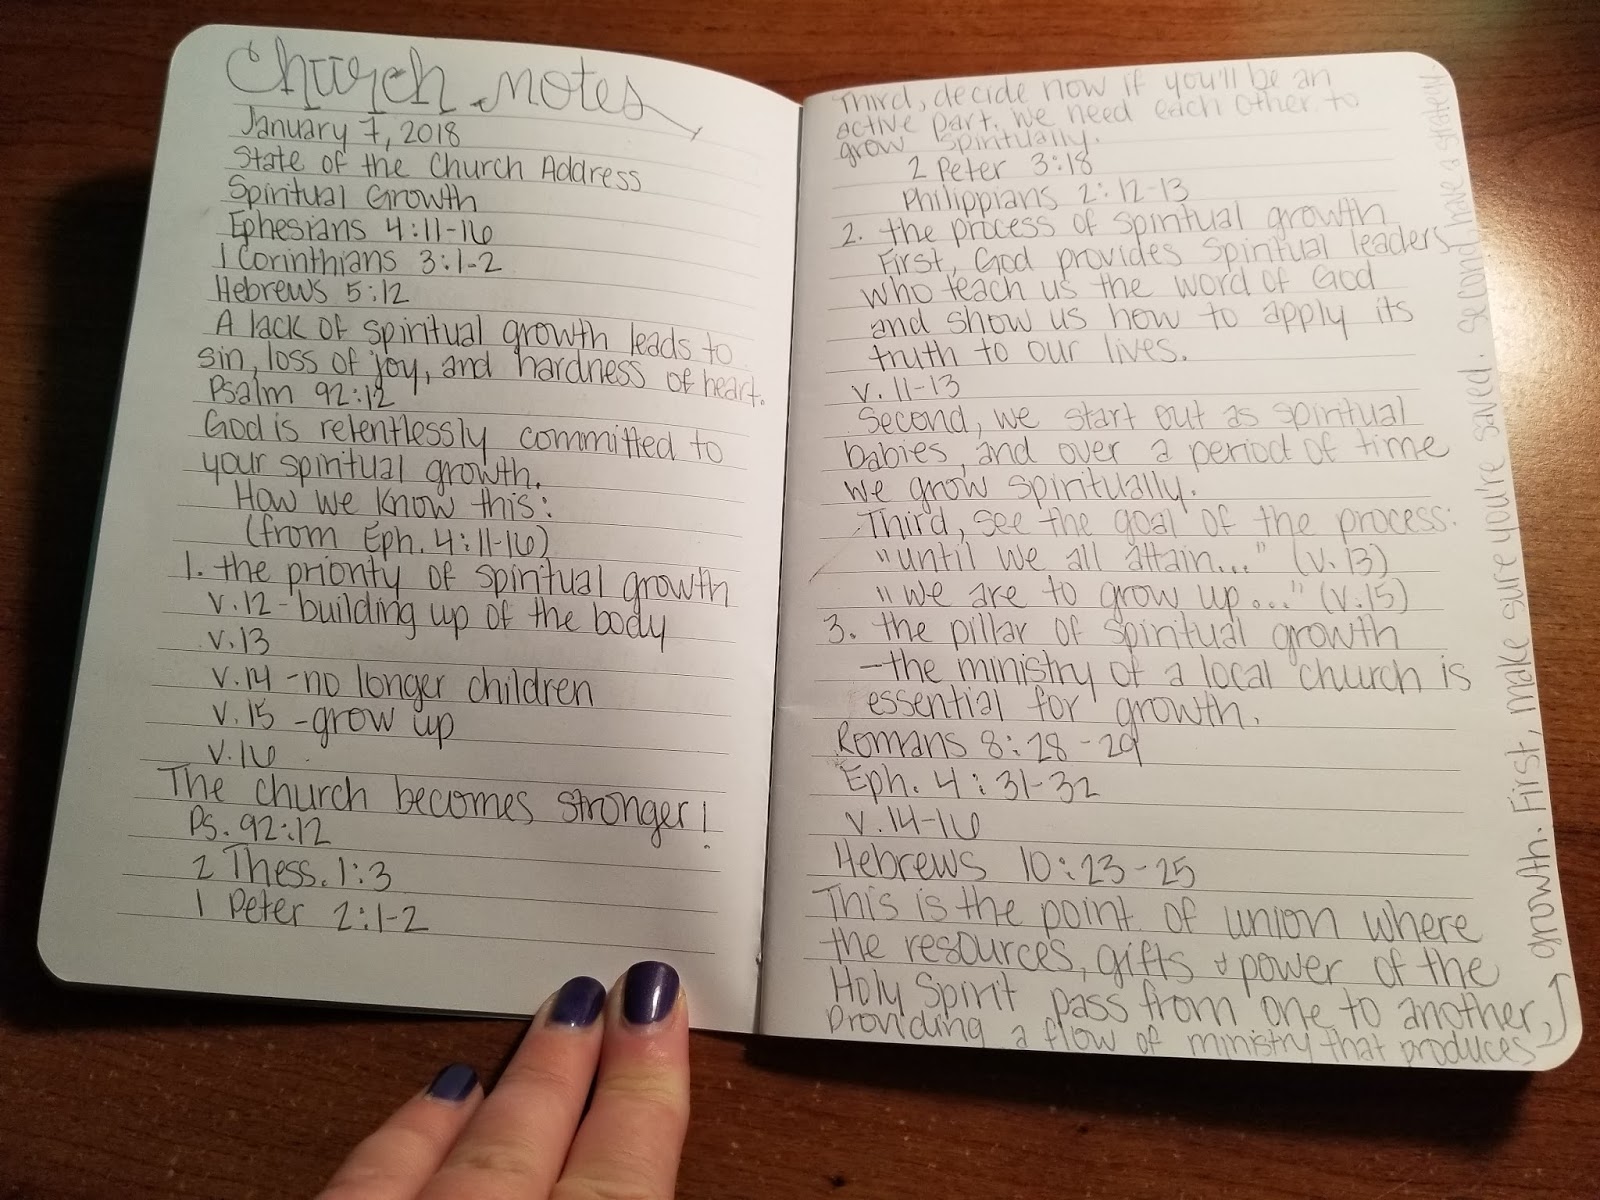 Church notes
January 7, 2018
State of the Church Address
Spiritual Growth
Ephesians 4:11-16
1 Corinthians 3:1-2
Hebrews 5:12
A lack of spiritual growth leads to
sin, loss of joy, and hardness of heart.
Psalm 92:12
God is relentlessly committed to
your spiritual growth.
How we know this:
(from Eph. 4:11-16)
1. the priority of spiritual growth
v.12 - building up of the body
v.13
v.14 - no longer children
v.15 - grow up
v.16
The church becomes stronger!
Ps. 92:12
2 Thess. 1:3
1 Peter 2:1-2
Third, decide now if you'll be an
active part. We need each other to
grow spiritually.
2 Peter 3:18
Philippians 2:12-13
2. the process of spiritual growth
First, God provides spiritual leaders
who teach us the word of God
and show us how to apply its
truth to our lives.
v. 11-13
Second, we start out as spiritual
babies, and over a period of time
we grow spiritually.
Third, see the goal of the process:
"until we all attain..." (v.13)
"we are to grow up..." (v.15)
3. the pillar of spiritual growth
- the ministry of a local church is
essential for growth.
Romans 8:28-29
Eph. 4:31-32
v.14-16
Hebrews 10:23-25
This is the point of union where
the resources, gifts + power of the
Holy Spirit pass from one to another,
providing a flow of ministry that produces
growth. First, make sure you're saved. Second, have a strategy.